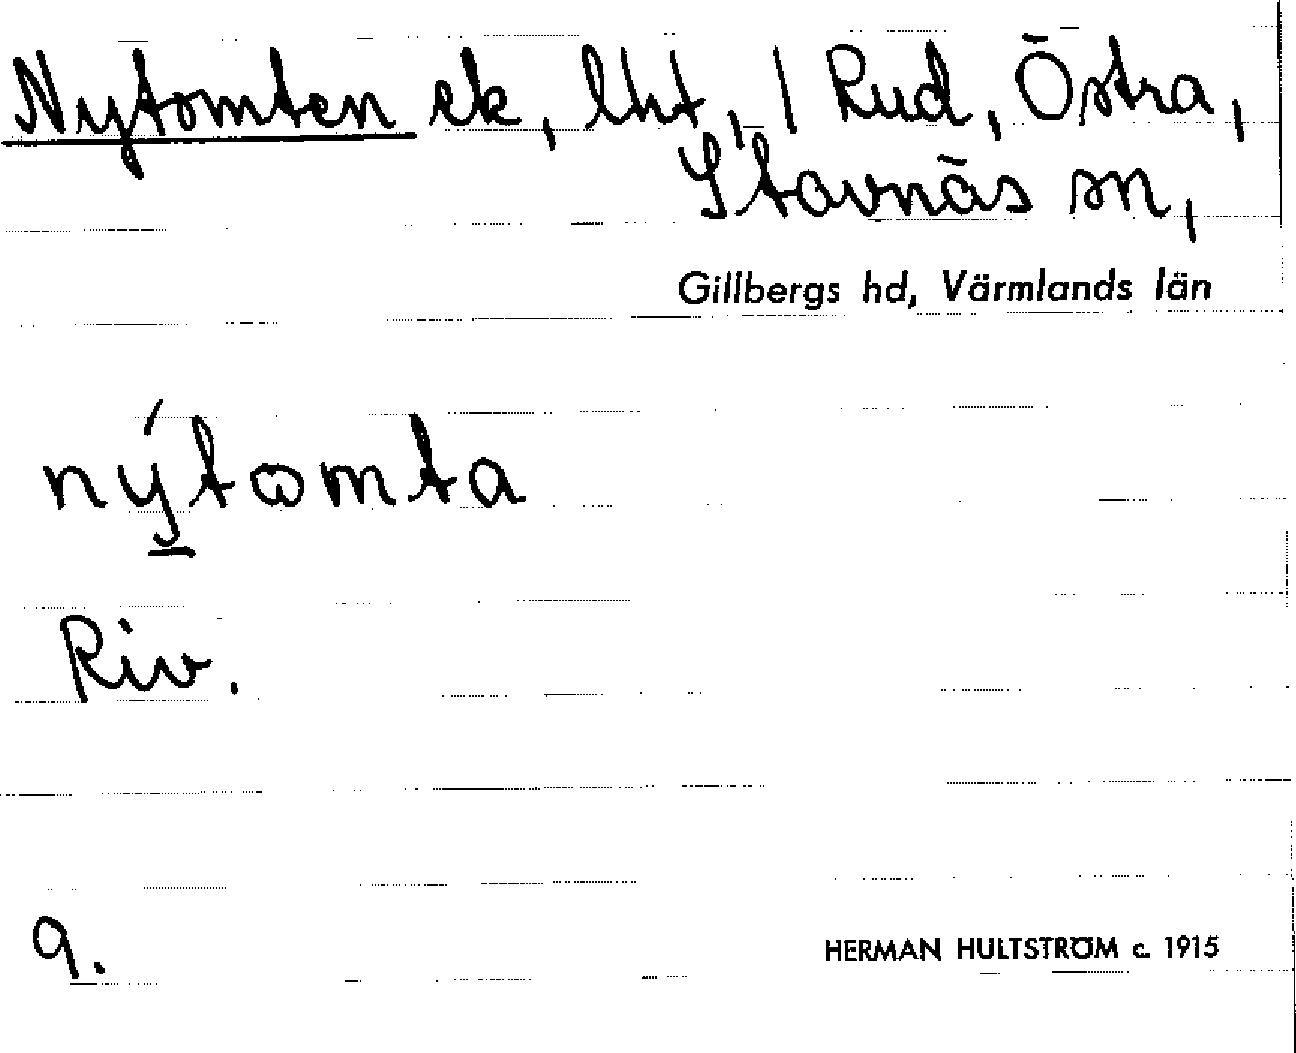 Nytomten ek, lht, / Rud, Östra,
Stavnäs sn,
Gillbergs hd, Värmlands län
nýtωmta
Riv.
9.
HERMAN HULTSTRÖM c. 1915